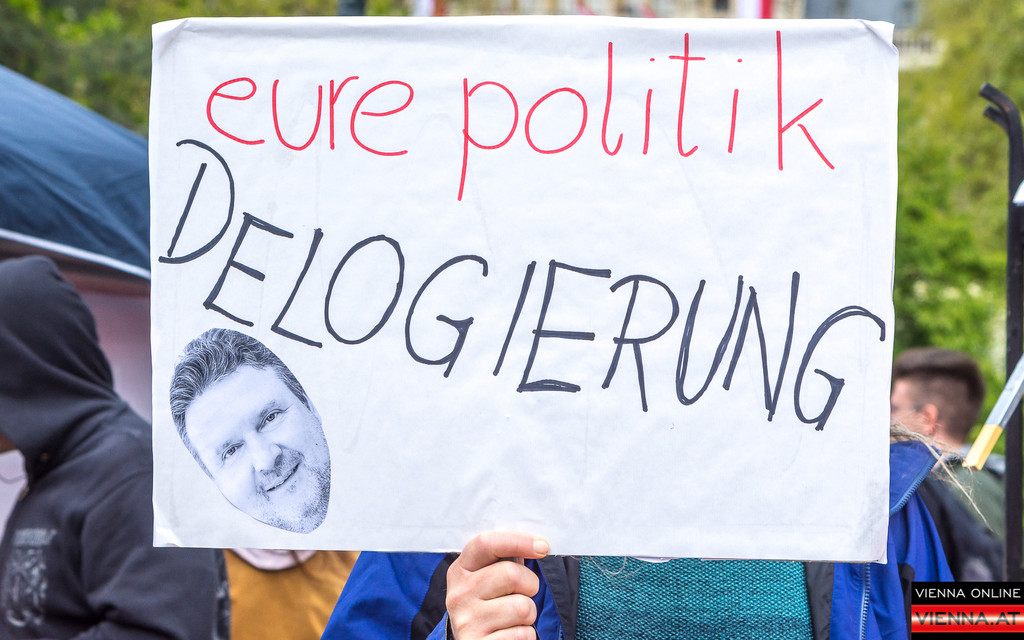 eure politik
DELOGIERUNG
VIENNA ONLINE
VIENNA.AT